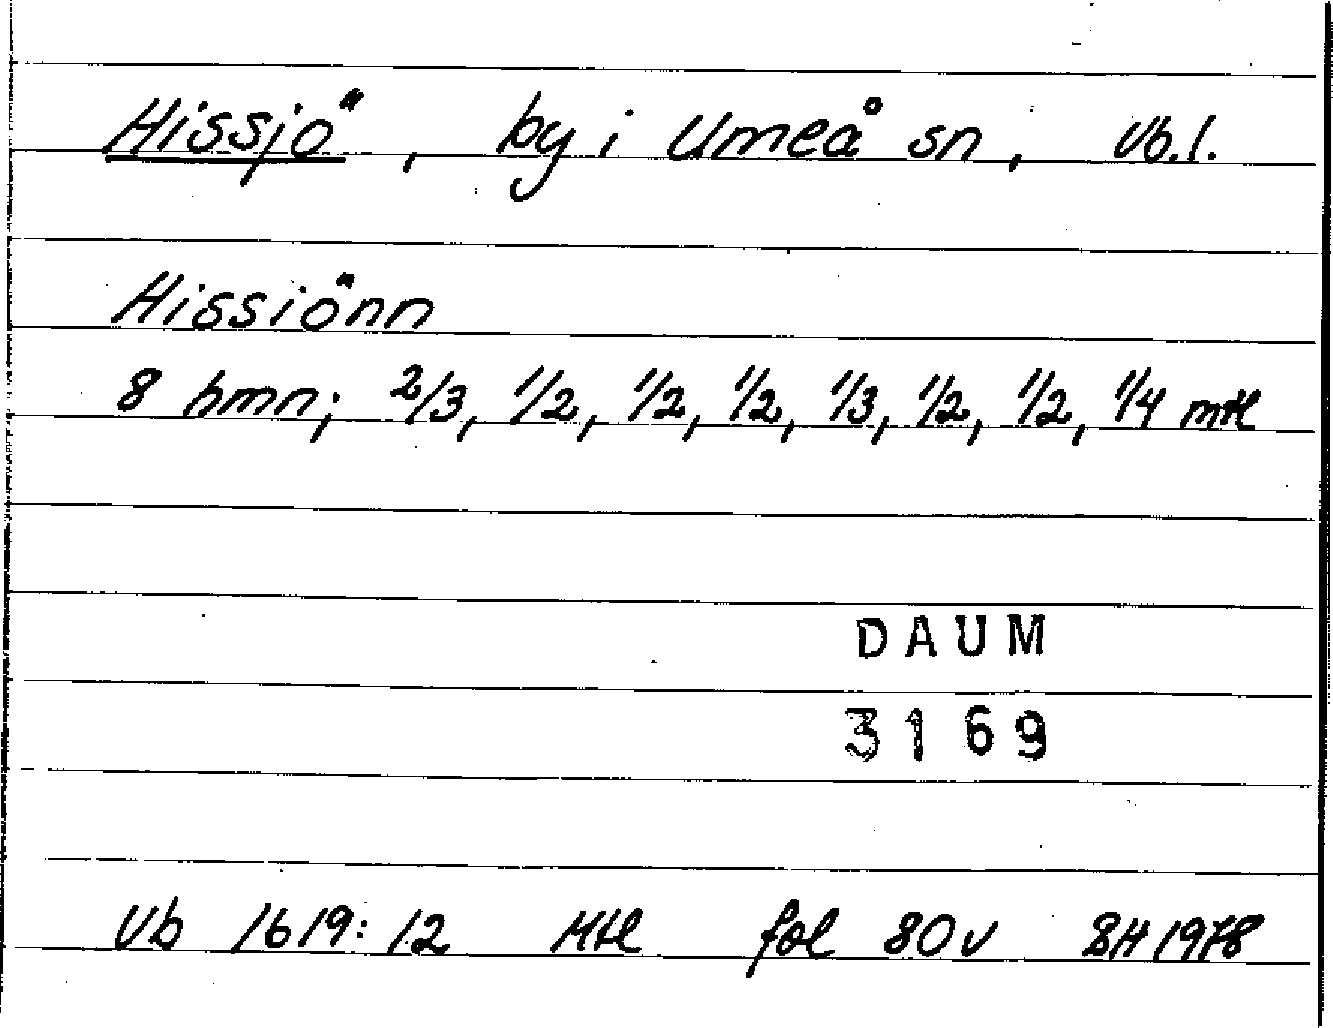 Hissjö, by i Umeå sn, Vb.l.
Hissiönn
8 hmn; 2/3, 1/2, 1/2, 1/2, 1/3, 1/2, 1/2, 1/4 mtl
DAUM
3169
Vb 1619:12 Mtl fol 80v BH 1978